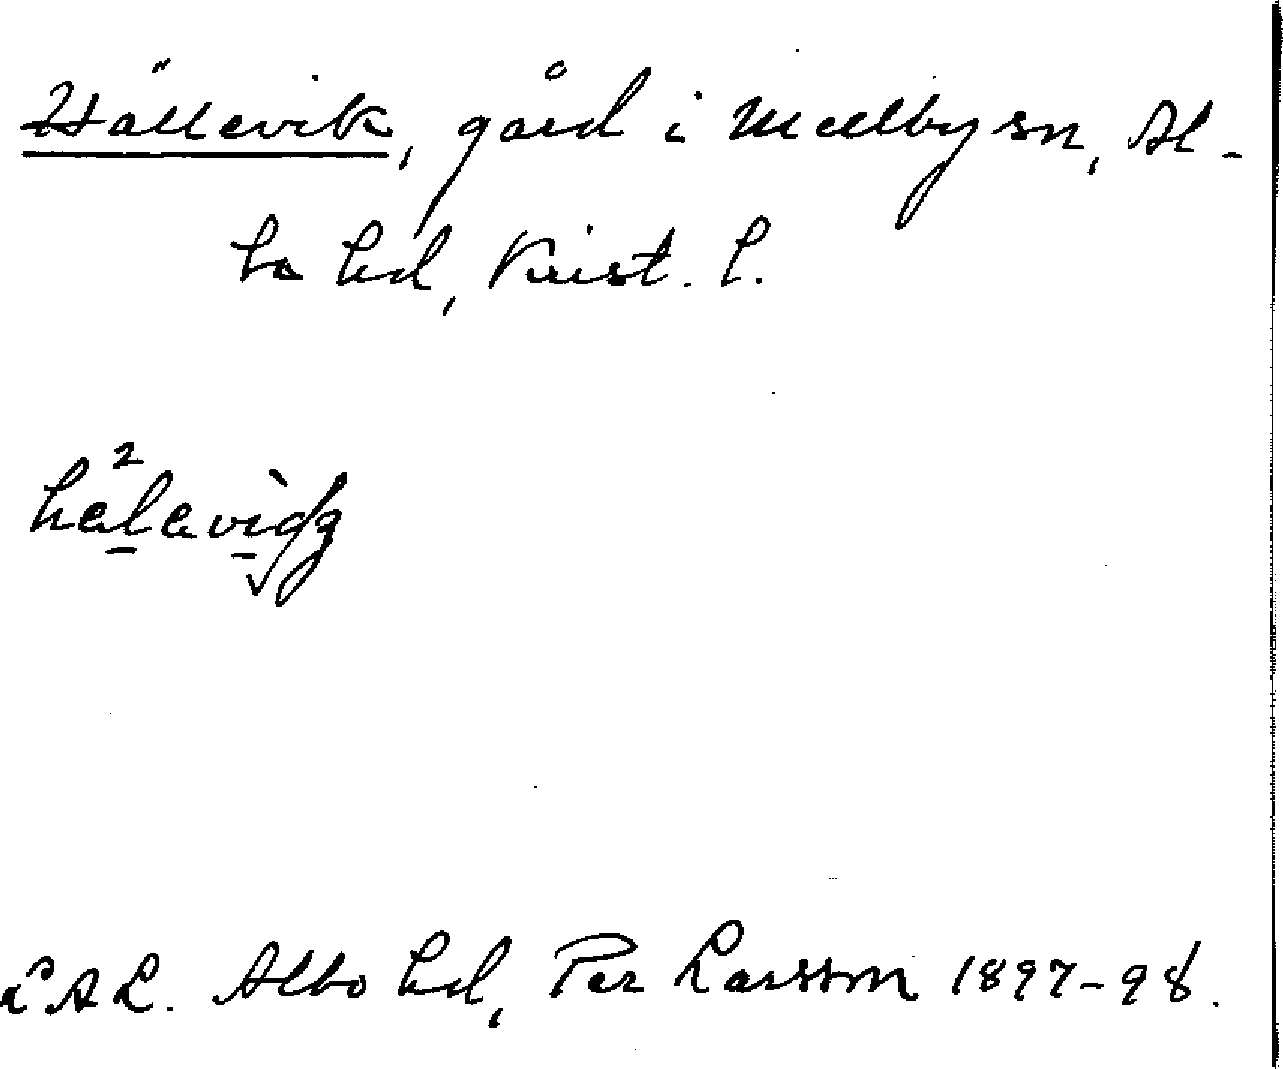 Hällevik, gård i Mellby sn, Al-
bo hd, Krist. l.
LAL. Albo hd, Per Larsson 1897-98.